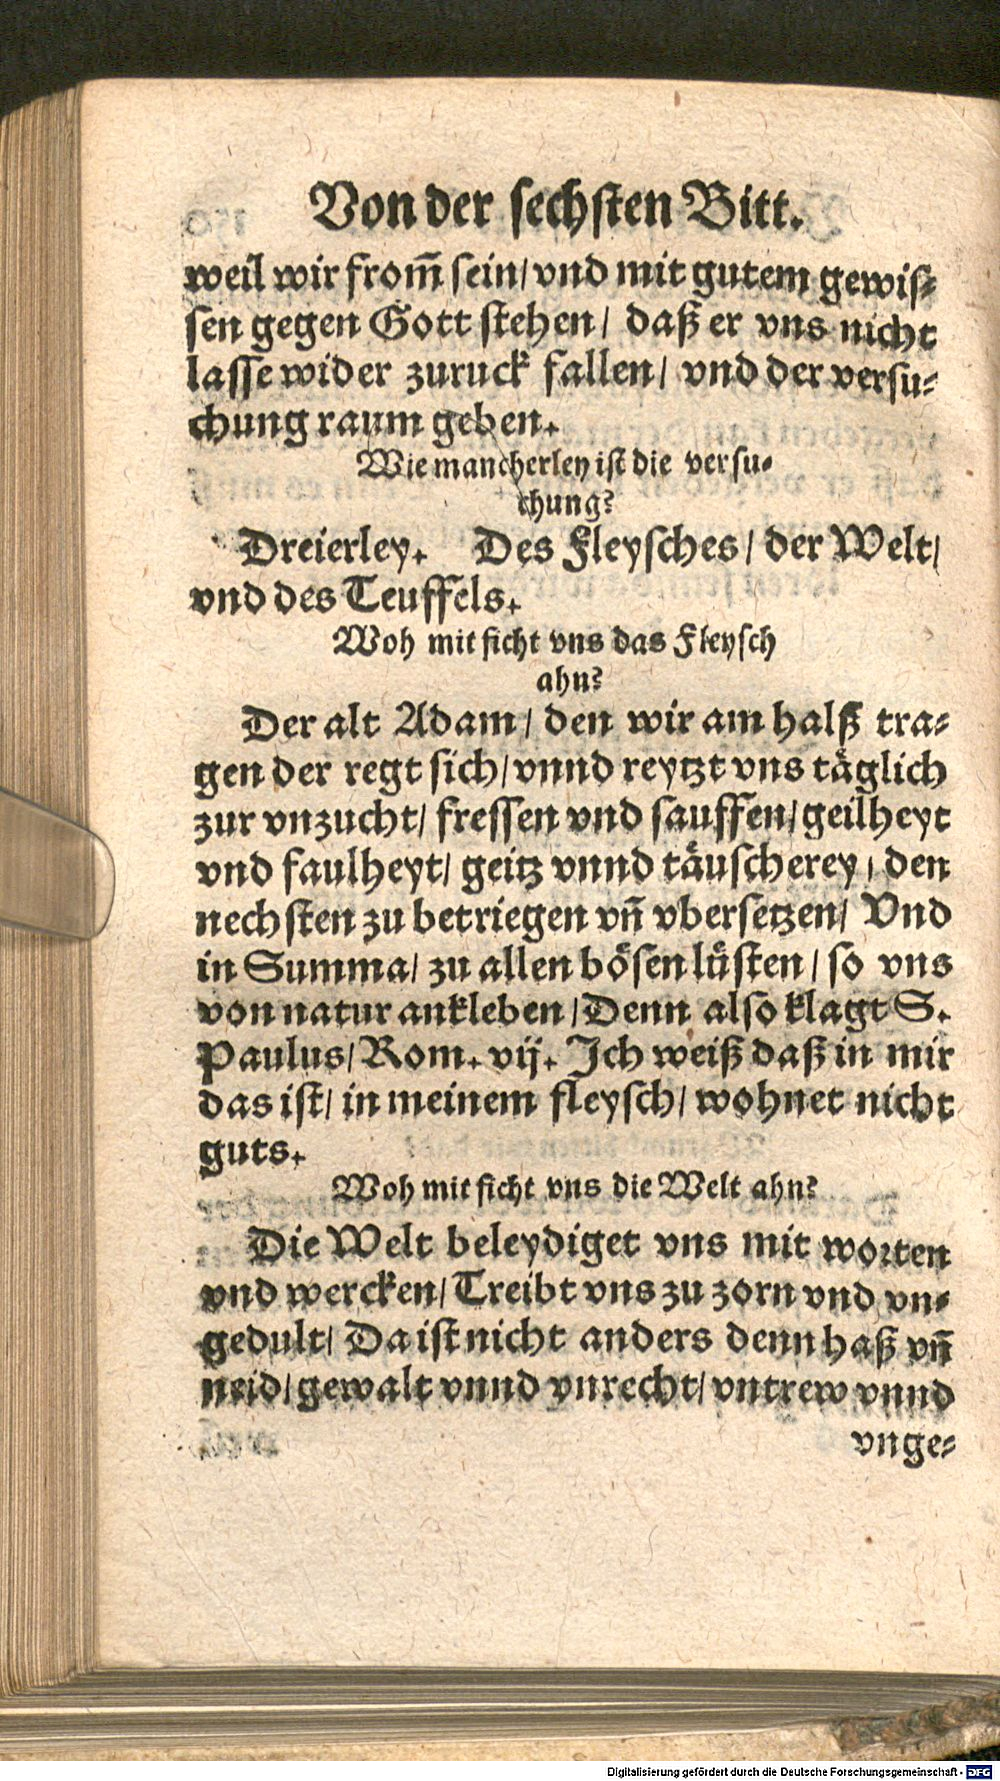 Von der sechsten Bitt.
weil wir from̃ sein/ vnd mit gutem gewis⸗
sen gegen Gott stehen/ daß er vns nicht
lasse wider zuruck fallen/ vnd der versu⸗
chung raum geben.
Wie mancherley ist die versu⸗
chung?
Dreierley. Des Fleysches/ der Welt/
vnd des Teuffels.
Woh mit ficht vns das Fleysch
ahn?
Der alt Adam/ den wir am halß tra⸗
gen der regt sich/ vnnd reytzt vns täglich
zur vnzucht/ fressen vnd sauffen/ geilheyt
vnd faulheyt/ geitz vnnd täuscherey/ den
nechsten zu betriegen vñ vbersetzen/ Vnd
in Summa/ zu allen bösen lüsten/ so vns
von natur ankleben/ Denn also klagt S.
Paulus/ Rom. vij. Ich weiß daß in mir
das ist/ in meinem fleysch/ wohnet nicht
guts.
Woh mit ficht vns die Welt ahn?
Die Welt beleydiget vns mit worten
vnd wercken/ Treibt vns zu zorn vnd vn⸗
gedult/ Da ist nicht anders denn haß vñ
neid/ gewalt vnnd vnrecht/ vntrew vnnd
vnge⸗
Digitalisierung gefördert durch die Deutsche Forschungsgemeinschaft - DFG